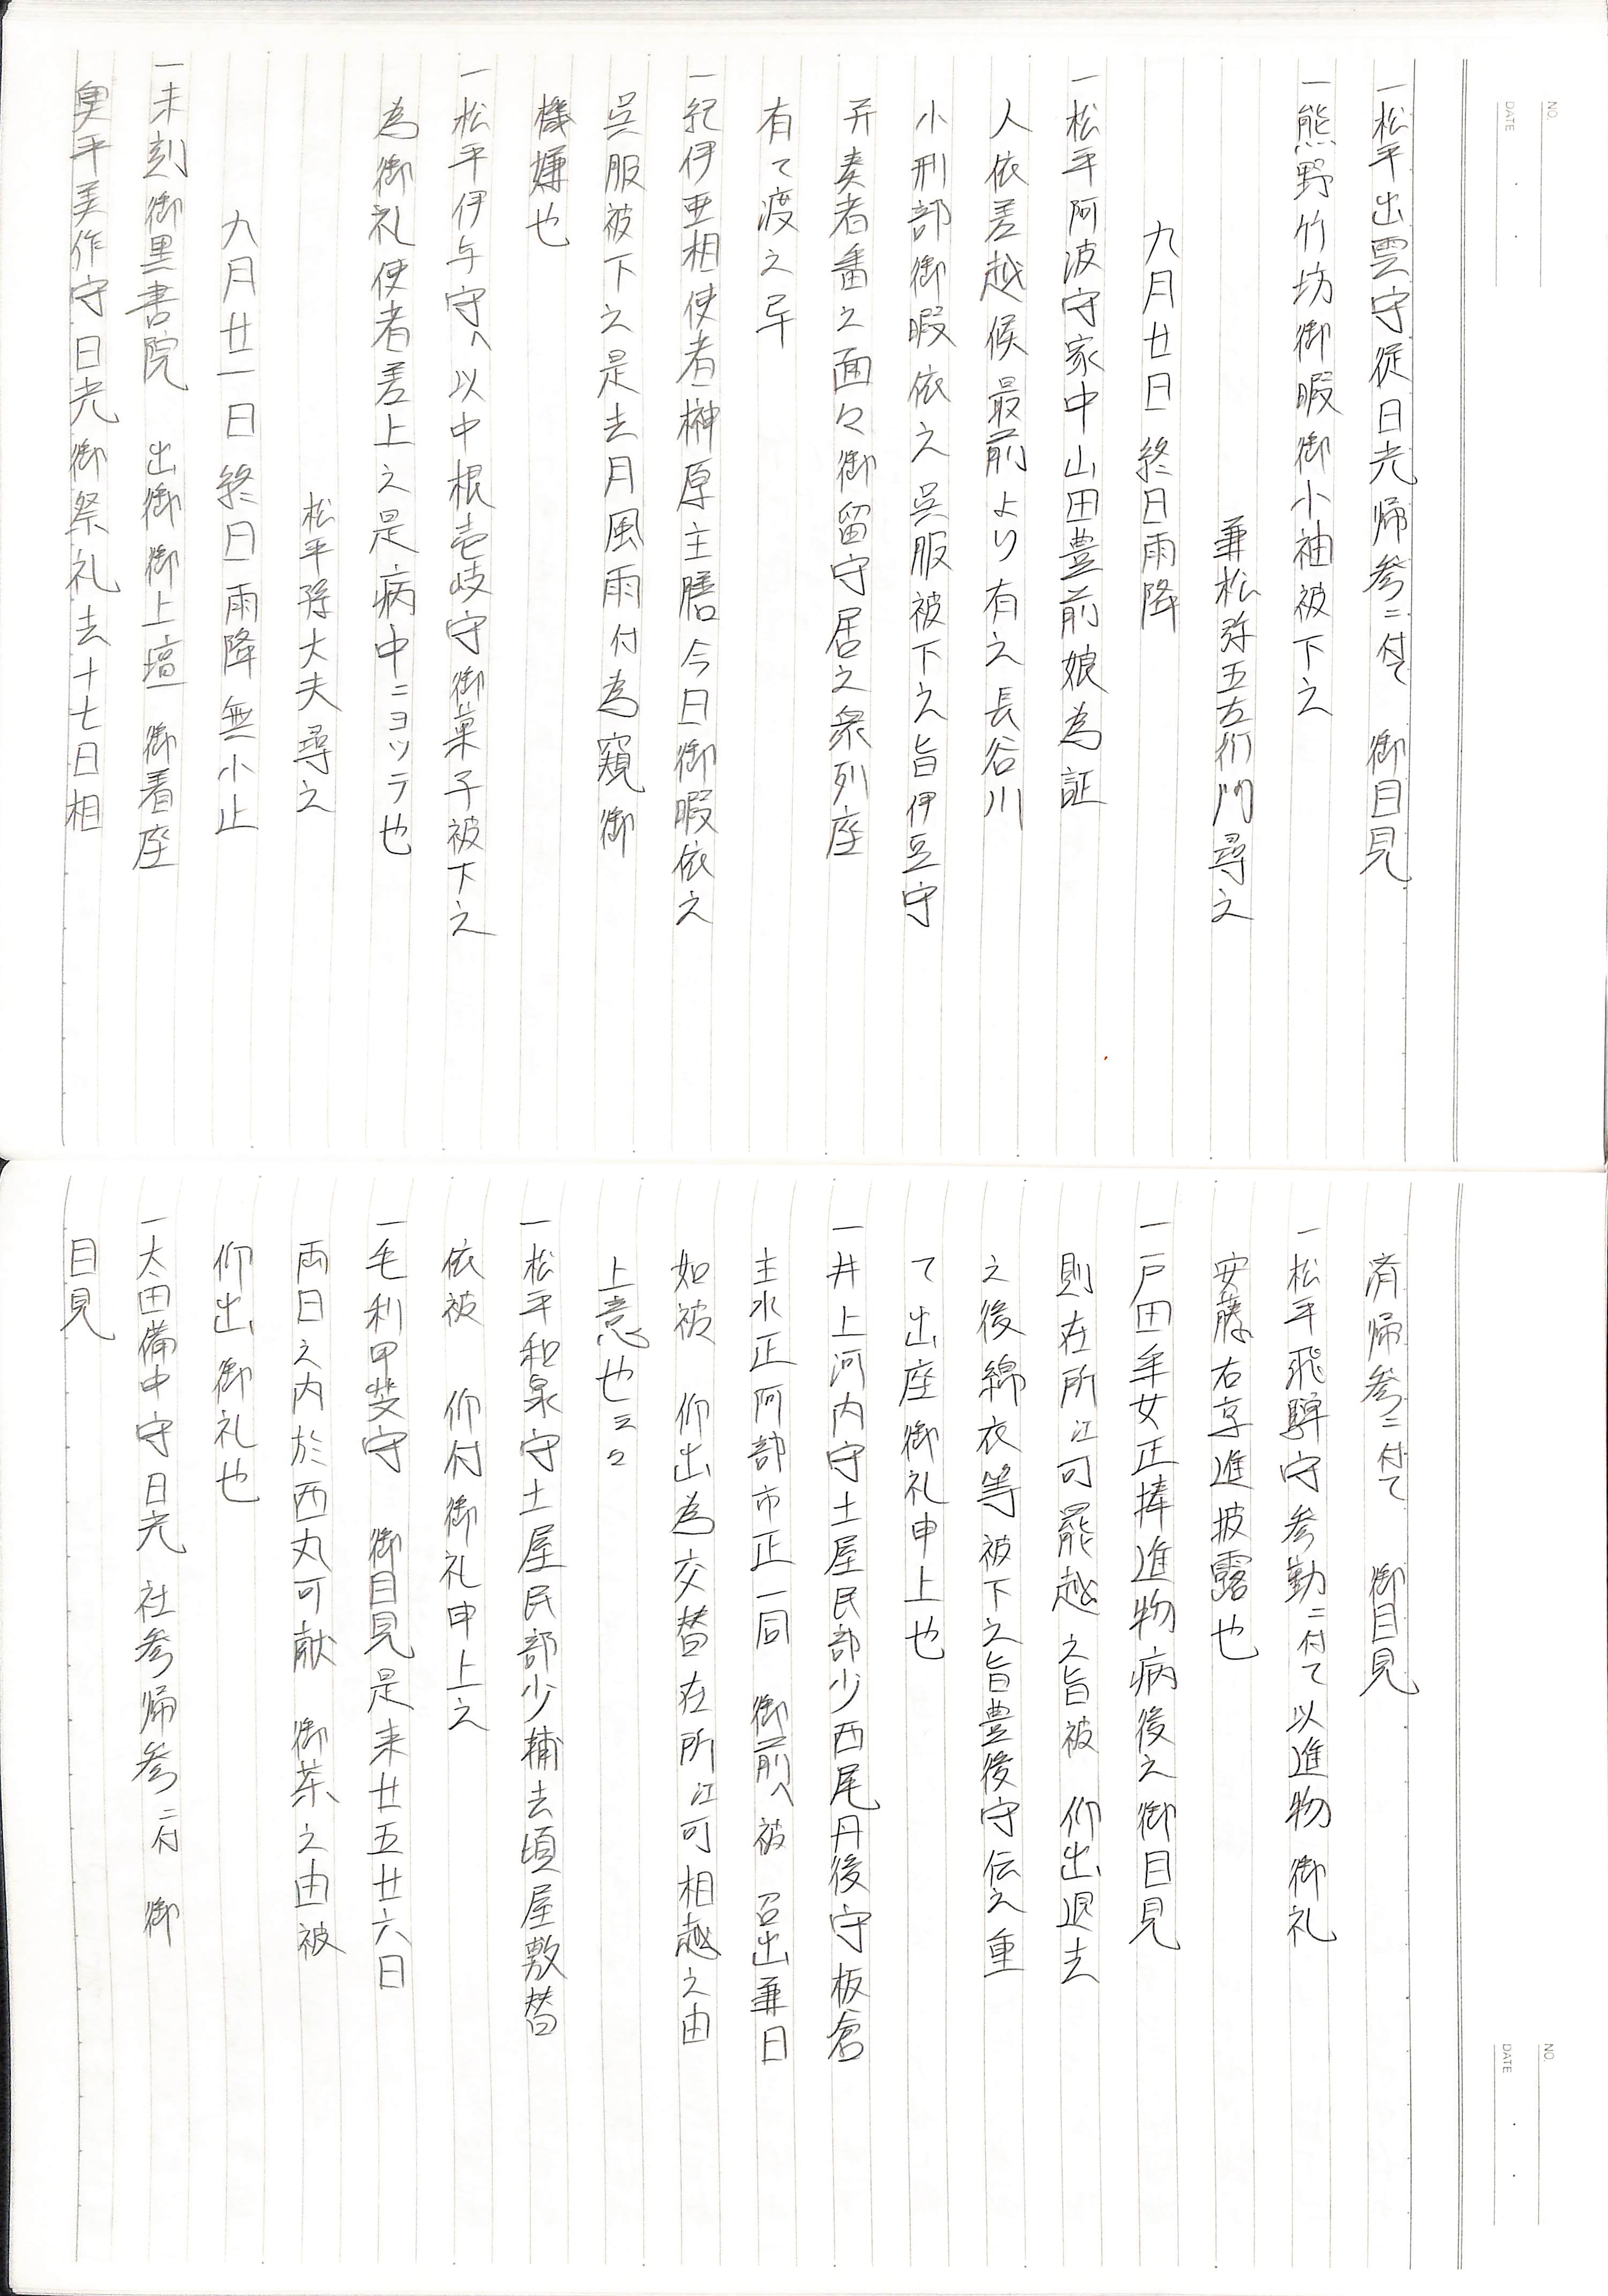 一松平出雲守従日光帰参ニ付て　御目見
一熊野竹坊御暇御小袖被下之
兼松弥五左衛門尋之
九月廿日 終日雨降
一松平阿波守家中山田豊前娘為証
人依差越候最前より有之長谷川
小刑部御暇依之呉服被下之旨伊豆守
并奏者番之面々御留守居之衆列座
有て渡之畢
一紀伊亜相使者榊原主膳今日御暇依之
呉服被下之是去月風雨付為窺御
機嫌也
一松平伊与守へ以中根壱岐守御菓子被下之
為御礼使者差上之是病中ニヨツテ也
松平隼大夫尋之
九月廿一日 終日雨降無小止
一未刻御黒書院　出御御上壇　御着座
奥平美作守日光御祭礼去十七日相
済帰参ニ付て　御目見
一松平飛騨守参勤ニ付て以進物御礼
安藤右京進披露也
一戸田采女正捧進物病後之御目見
則在所江可罷越之旨被　仰出退去
之後綿衣等被下之旨豊後守伝之重
て出座御礼申上也
一井上河内守土屋民部少西尾丹後守板倉
主水正阿部市正一同　御前へ被　召出兼日
如被　仰出為交替在所江可相越之由
上意也云々
一松平和泉守土屋民部少輔去頃屋敷替
依被　仰付御礼申上之
一毛利甲斐守　御目見是来廿五廿六日
両日之内於西丸可献　御茶之由被
仰出御礼也
一太田備中守日光社参帰参ニ付　御
目見
NO.
DATE
NO.
DATE